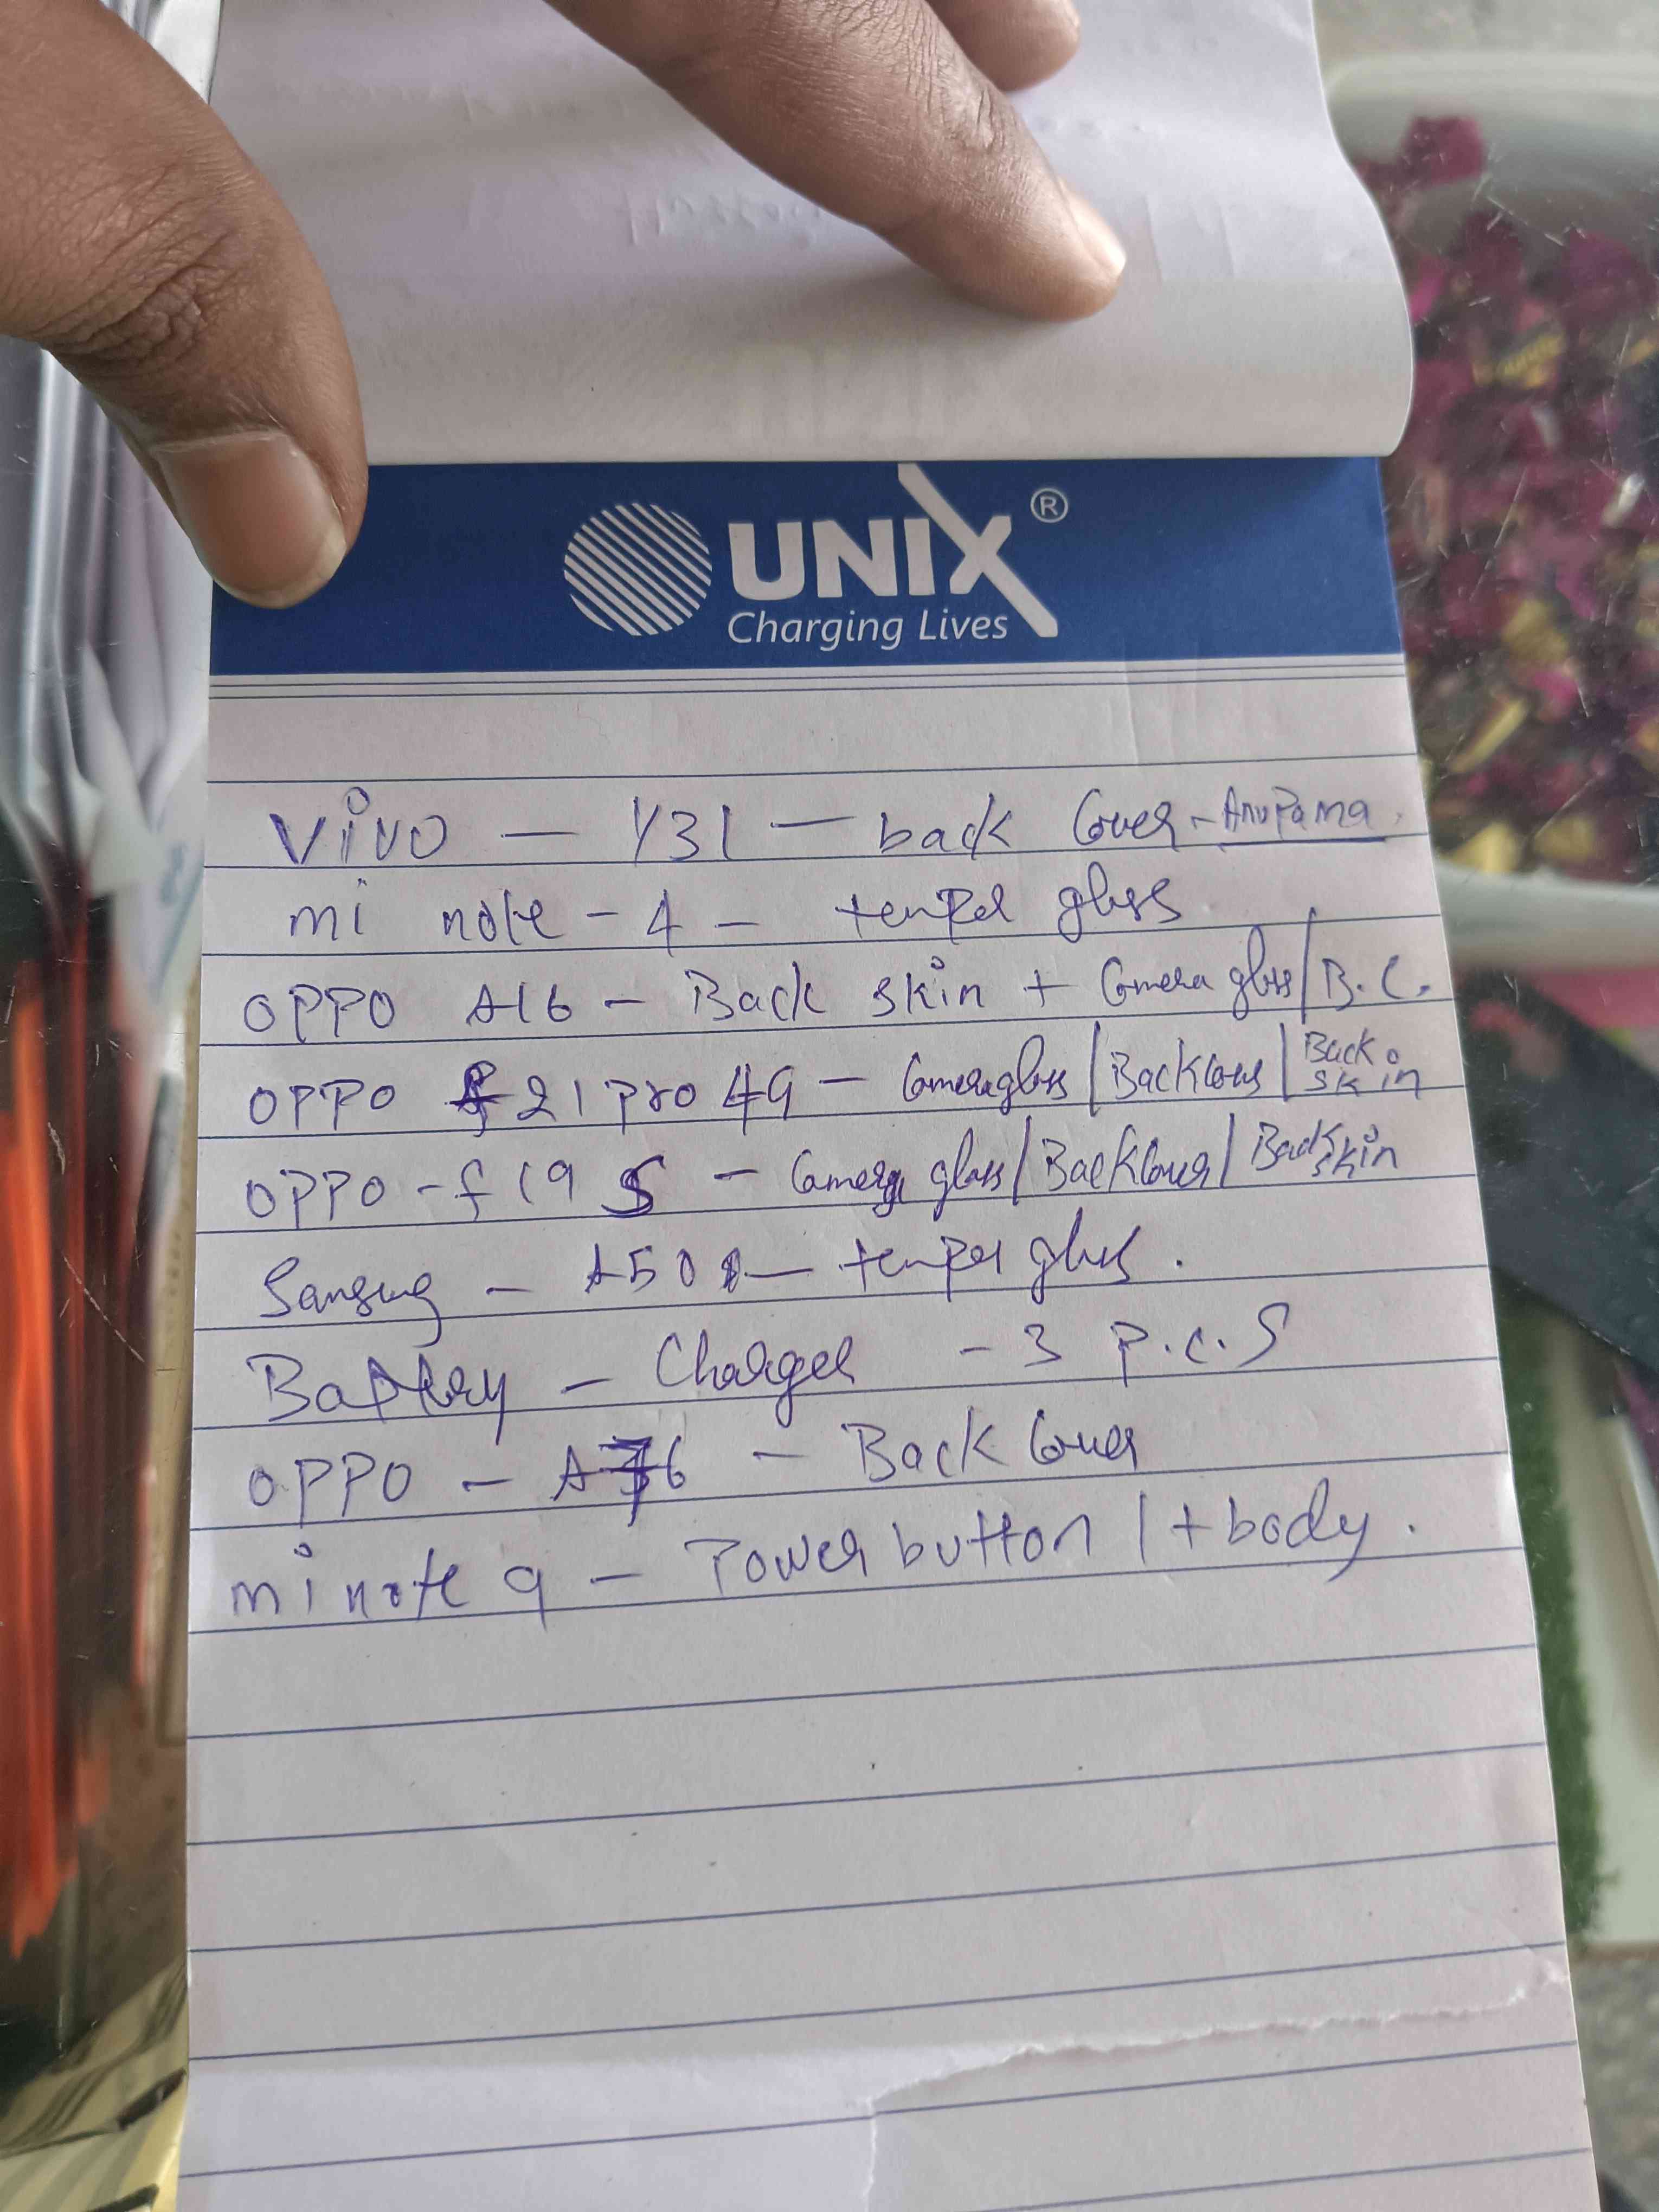 UNIX®
Charging Lives
Vivo — Y31 — back Cover - Anupama
mi note - 4 - temper glass
OPPO A16 - Back skin + Camera glass/B.C.
OPPO f21 pro 4G - Camera glass/Back Cover/Back skin
OPPO - f19 S - Camera glass/Back Cover/Back skin
Samsung - A50 — temper glass.
Battery - Charger - 3 P.C.S
OPPO - A76 - Back Cover
mi note 9 - Power button / + body.